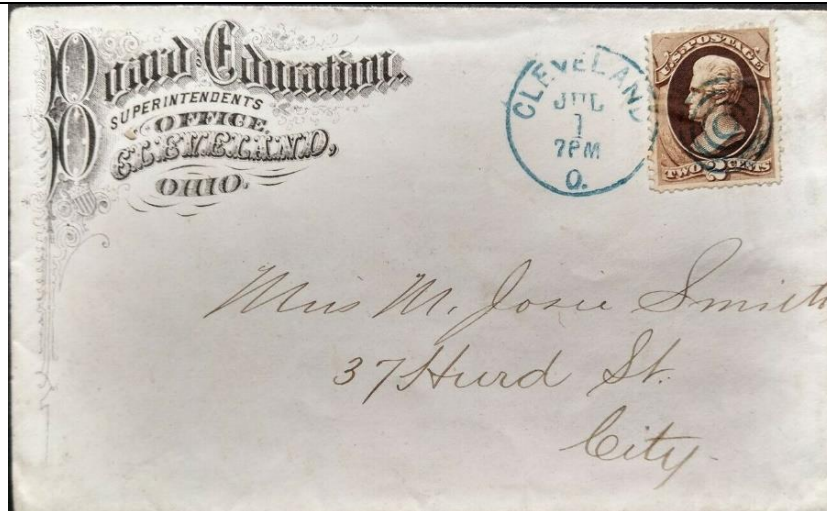 Board of Education.
SUPERINTENDENTS
OFFICE,
CLEVELAND,
OHIO.
CLEVELAND
JUL
1
7PM
O.
U.S. POSTAGE
TWO 2 CENTS
Miss M. Josie Smith
37 Hurd St.
City.